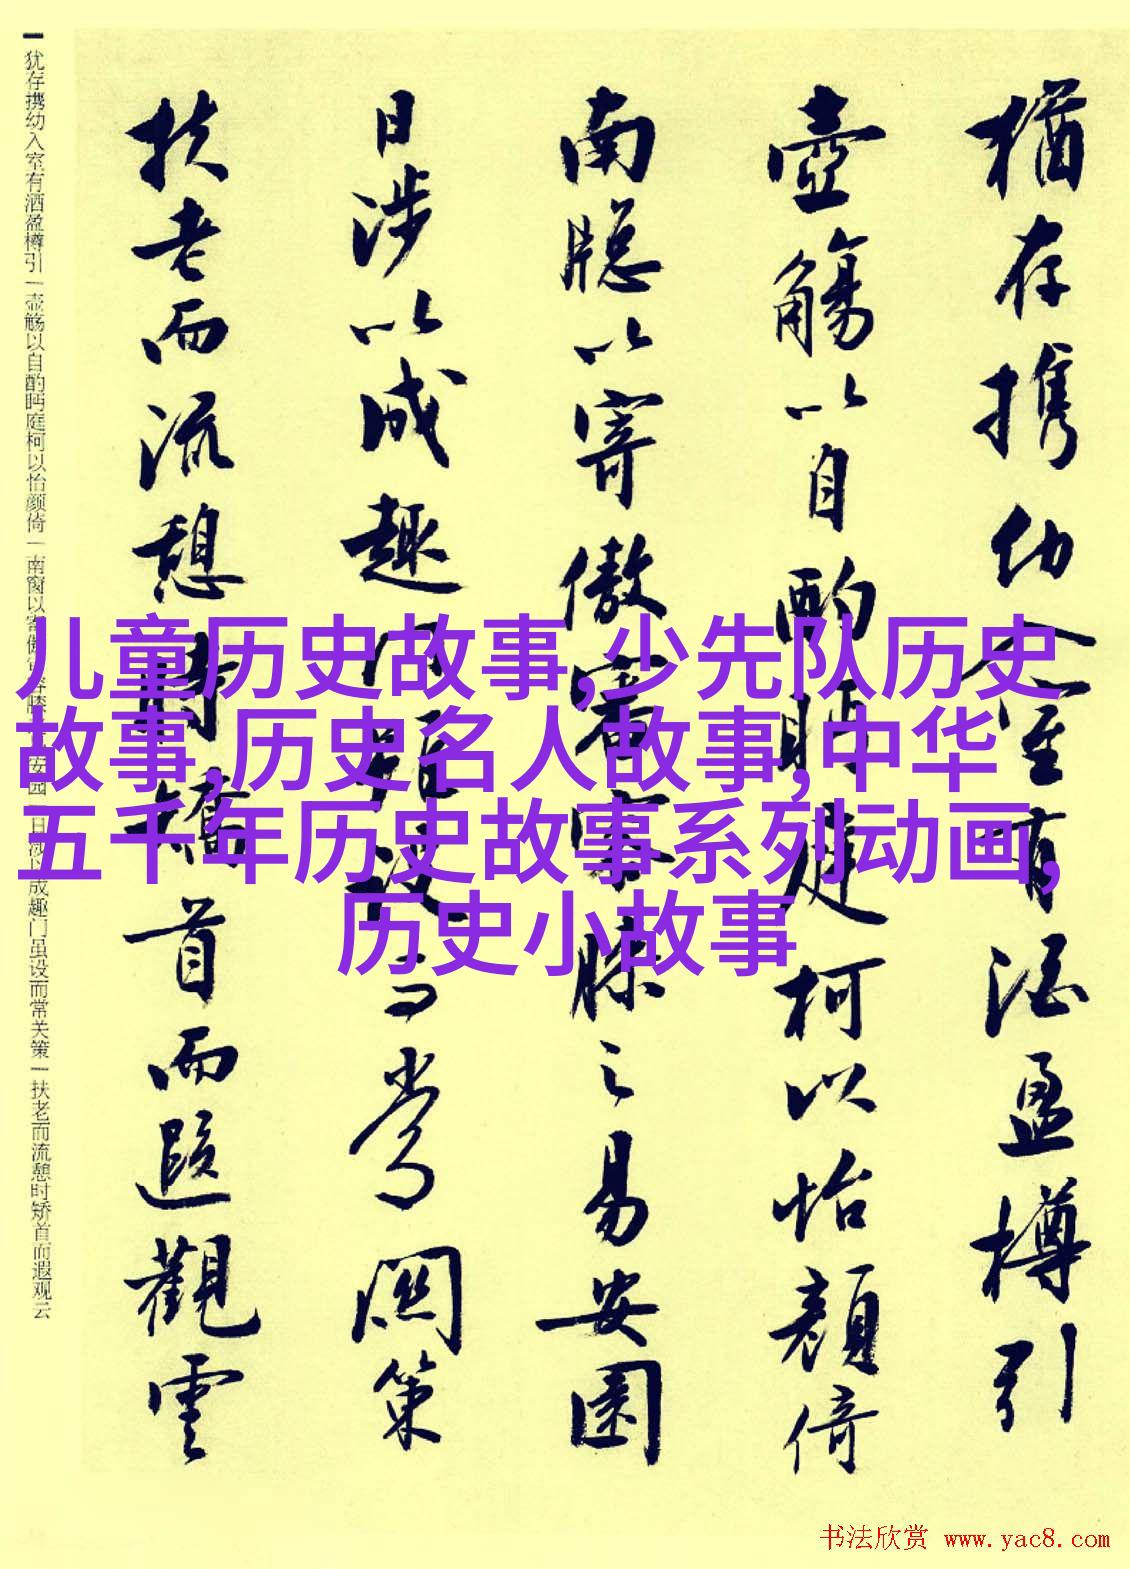 猶存携幼入室有酒盈樽引
壺觴以自酌眄庭柯以怡顔倚
南牕以寄傲審容膝之易安園
日涉以成趣門雖設而常關策
扶老而流憩時矯首而遐觀雲
犹存携幼入室有酒盈樽引
壶觞以自酌眄庭柯以怡颜倚
南窗以寄傲
安园
日涉以成趣门虽设而常关策
扶老而流憩时矫首而遐观云
儿童历史故事,少先队历史
故事,历史名人故事,中华
五千年历史故事系列动画,
历史小故事
书法欣赏 www.yac8.com